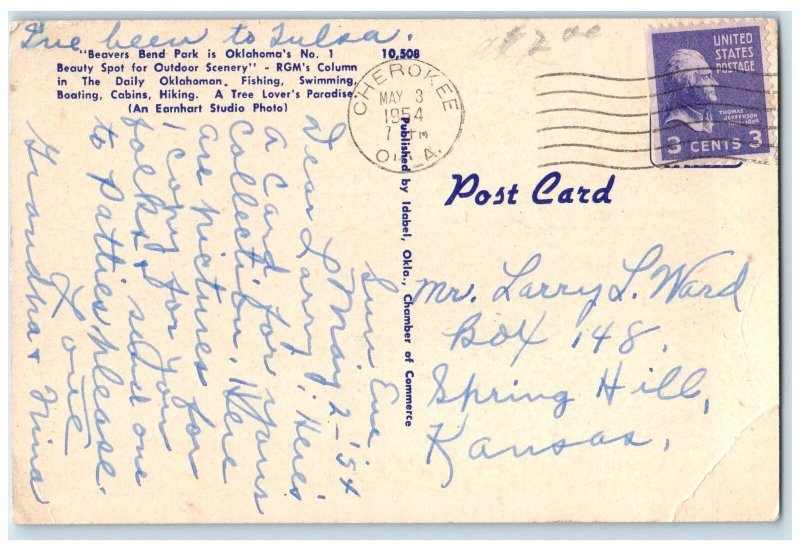 I've been to Tulsa.
"Beavers Bend Park is Oklahoma's No. 1
Beauty Spot for Outdoor Scenery" - RGM's Column
in The Daily Oklahoman. Fishing, Swimming,
Boating, Cabins, Hiking. A Tree Lover's Paradise.
(An Earnhart Studio Photo)
10,508
$2.00
CHEROKEE
MAY 3
1954
OKLA.
UNITED
STATES
POSTAGE
THOMAS
JEFFERSON
3 CENTS 3
Published by Idabel, Okla., Chamber of Commerce
Post Card
Mr. Larry L. Ward
Box 148,
Spring Hill,
Kansas,
Sun Eve
May 2-'54
Dear Larry, Here's
a Card for your
Collection. Here
are pictures for
1 copy for you
folks & send one
to Patties please.
Love
Grandpa & Nina